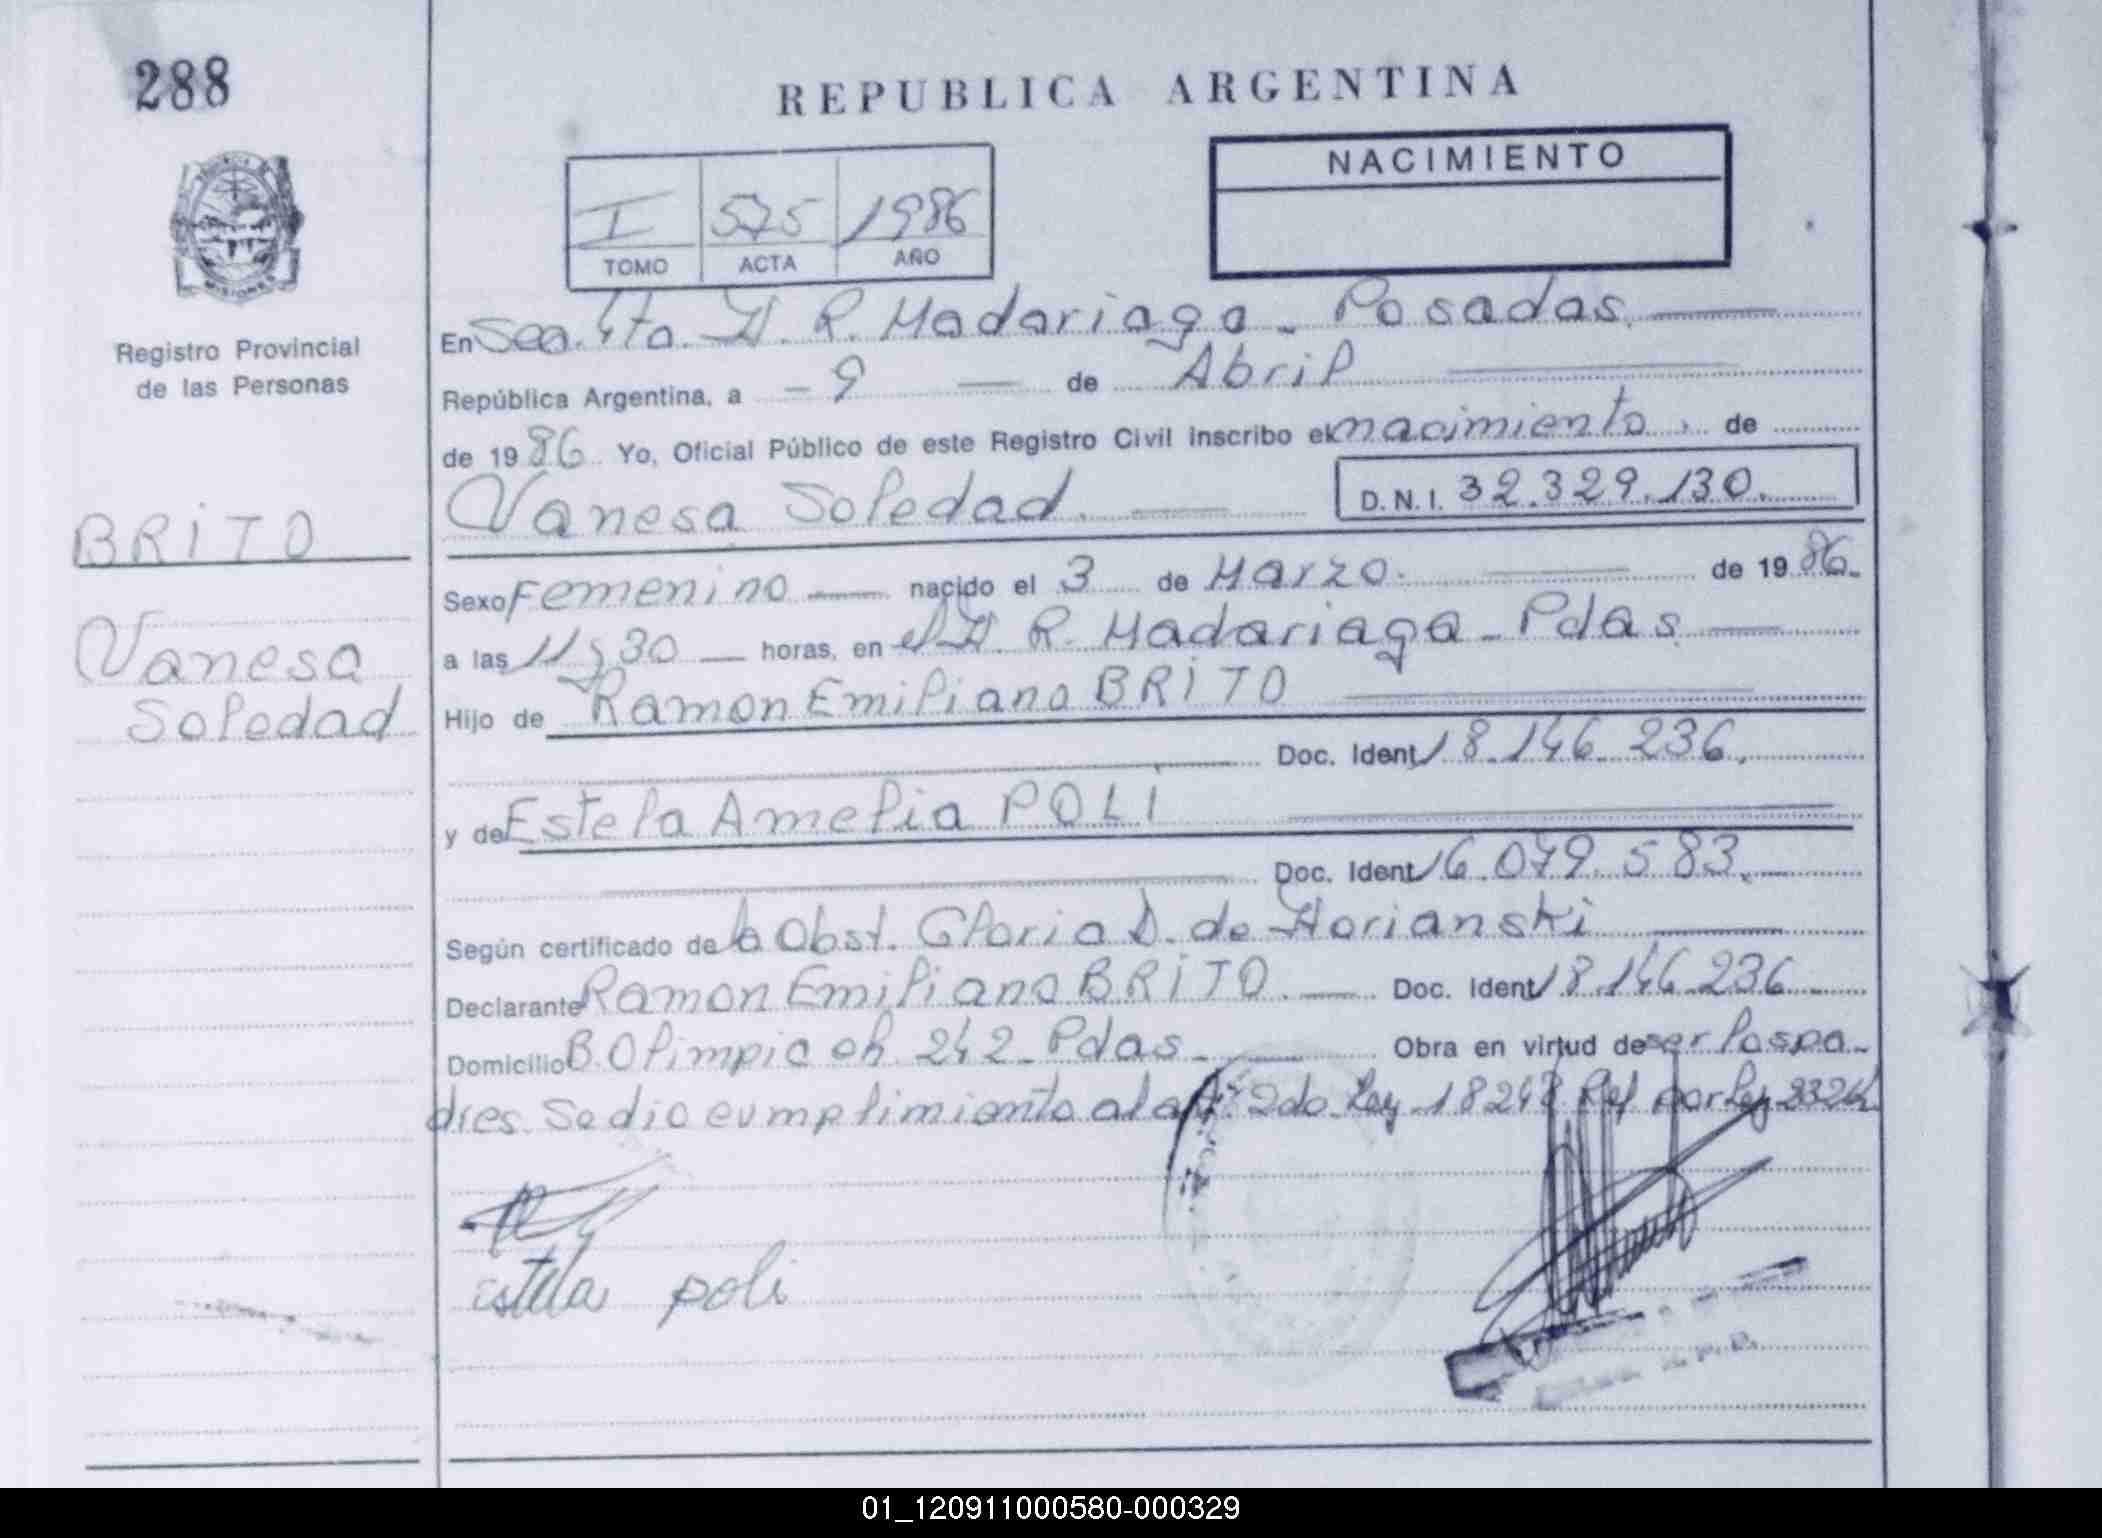 288
REPUBLICA ARGENTINA
NACIMIENTO
I 575 1986
TOMO ACTA AÑO
MISIONES
Registro Provincial
de las Personas
En Sec. 4ta. H. R. Madariaga - Posadas.
República Argentina, a - 9 de Abril
de 1986. Yo, Oficial Público de este Registro Civil inscribo el nacimiento, de
Vanesa Soledad. D.N.I. 32.329.130.
BRITO
Sexo Femenino nacido el 3 de Marzo. de 1986.
Vanesa
Soledad
a las 11 y 30 horas, en el H. R. Madariaga - Pdas.
Hijo de Ramon Emiliano BRITO
Doc. Ident 18.146.236.
y de Estela Amelia POLI
Doc. Ident 16.079.583.
Según certificado de la Obst. Gloria D. de Horianski
Declarante Ramon Emiliano BRITO. Doc. Ident 18.146.236
Domicilio B. Olimpic ch 242 - Pdas. Obra en virtud de ser los pa-
dres. Se dio cumplimiento al art. 2do. Ley 18248 Ref. por Ley
estela poli
01_120911000580-000329